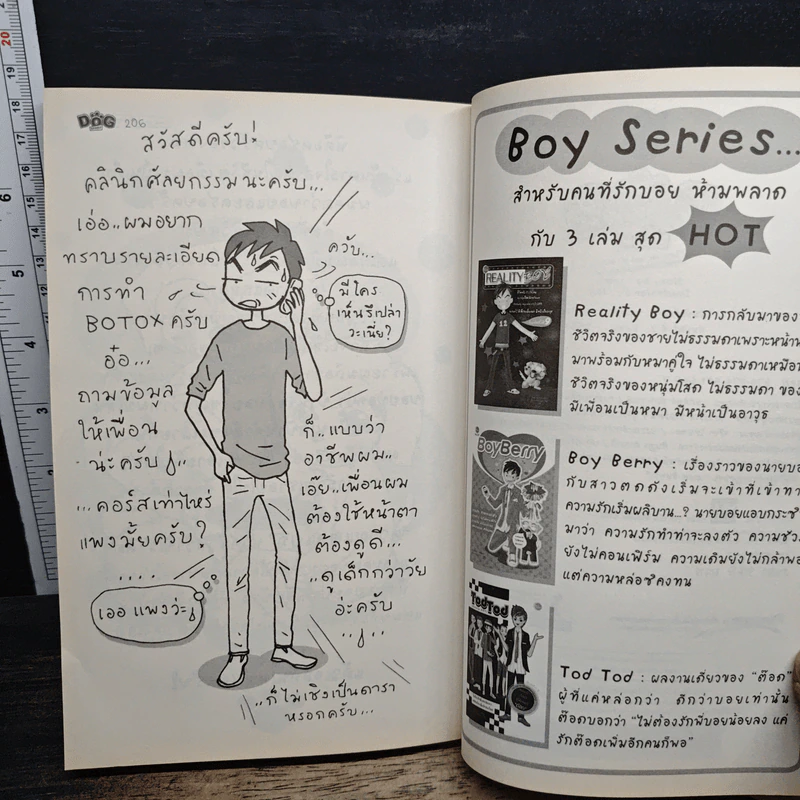 DOG 206
สวัสดีครับ!
คลินิกศัลยกรรมนะครับ...
เอ่อ..ผมอยาก
ทราบรายละเอียด
การทำ
BOTOX ครับ
อ๋อ...
ถามข้อมูล
ให้เพื่อน
น่ะครับ
...คอร์สเท่าไหร่
แพงมั้ยครับ?
....
เออ แพงว่ะ
ควับ...
มีใคร
เห็นรึเปล่า
วะเนี่ย?
ก็..แบบว่า
อาชีพผม..
เอ๊ย..เพื่อนผม
ต้องใช้หน้าตา
ต้องดูดี...
..ดูเด็กกว่าวัย
อ่ะครับ
..ก็ไม่เชิงเป็นดารา
หรอกครับ...
Boy Series...
สำหรับคนที่รักบอย ห้ามพลาด
กับ 3 เล่ม สุด HOT
REALITY
Reality Boy : การกลับมาของ
ชีวิตจริงของชายไม่ธรรมดาเพราะหน้า
มาพร้อมกับหมาคู่ใจ ไม่ธรรมดาเหมือน
ชีวิตจริงของหนุ่มโสด ไม่ธรรมดา ของ
มีเพื่อนเป็นหมา มีหน้าเป็นอาวุธ
BoyBerry
Boy Berry : เรื่องราวของนายบอย
กับสาวตกถังเริ่มจะเข้าที่เข้าทาง
ความรักเริ่มผลิบาน...? นายบอยแอบกระซิ
มาว่า ความรักทำท่าจะลงตัว ความชัว
ยังไม่คอนเฟิร์ม ความเดิมยังไม่กล้าพอ
แต่ความหล่อซิคงทน
Tod Tod
Tod Tod : ผลงานเดี่ยวของ "ต๊อด"
ผู้ที่แค่หล่อกว่า ดีกว่าบอยเท่านั้น
ต๊อดบอกว่า "ไม่ต้องรักพี่บอยน้อยลง แค่
รักต๊อดเพิ่มอีกคนก็พอ"